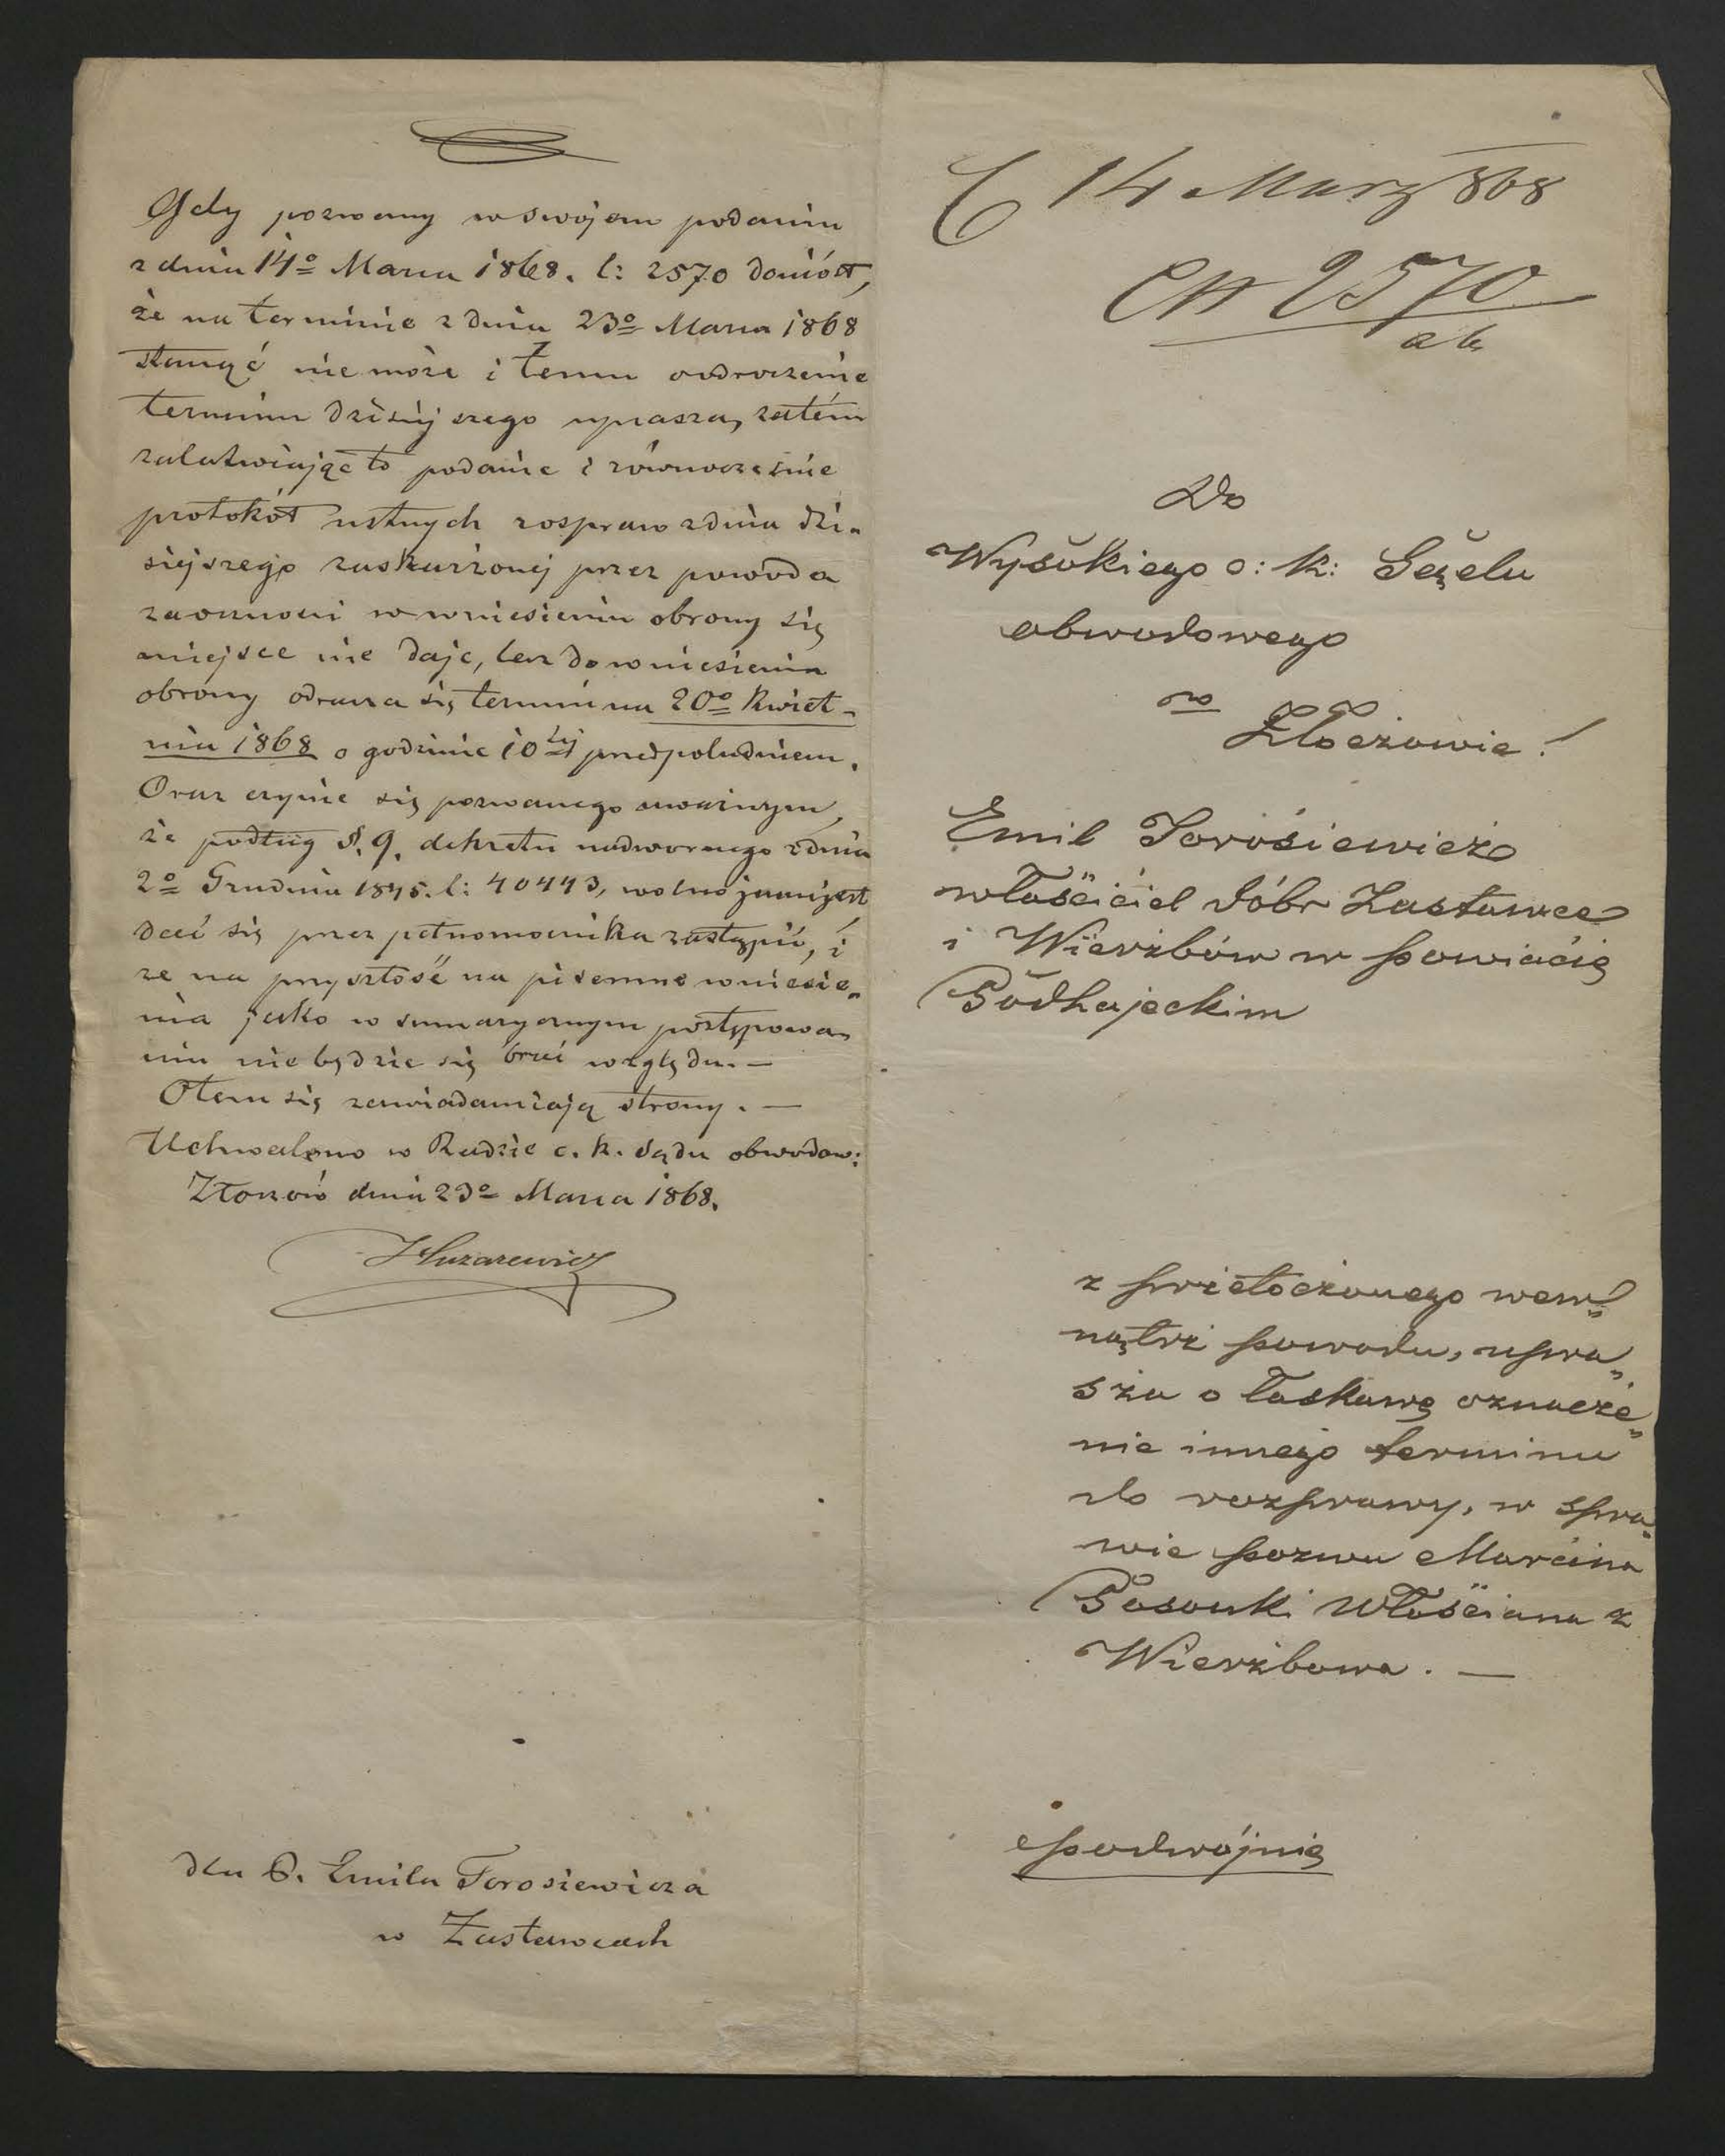 Gdy pozwany w swojem podaniu
z dnia 14º Marca 1868. l: 2570 doniósł,
że na terminie z dnia 23º Marca 1868
stanąć nie może i temu odroczenie
terminu dzisiejszego uprasza, zatém
załatwiając to podanie i równocześnie
protokół ustnych rozpraw z dnia dzi„
siejszego zaskarżonej przez powoda
zaoczności w wniesieniu obrony się
miejsce nie daje, lecz do wniesienia
obrony odracza się termin na 20º Kwiet„
nia 1868 o godzinie 10tej przedpołudniem.
Oraz czyni się pozwanego uważnym,
że podług §. 9. dekretu nadwornego z dnia
2º Grudnia 1845. l: 40443, wolno jemu jest
dać się przez pełnomocnika zastąpić, i
że na przyszłość na pisemne wniesie„
nia jako w sumarycznym postępowa„
niu nie będzie się brać względu. —
O tem się zawiadamiają strony. —
Uchwalono w Radzie c. k. Sądu obwodow:
Złoczów dnia 23º Marca 1868.
dla P. Emila Torosiewicza
w Zastawcach
14 März 868
2570
Do
Wysokiego c: k: Sądu
obwodowego
w
Złoczowie!
Emil Torosiewicz
właściciel dóbr Zastawce
i Wierzbów w powiecie
Podhajeckim
z przetoczonego wew„
nątrz powodu, upra„
sza o łaskawe oznacze„
nie innego terminu
do rozprawy, w spra„
wie pozwu Marcina
Włościana z
Wierzbowa. —
podwójnie